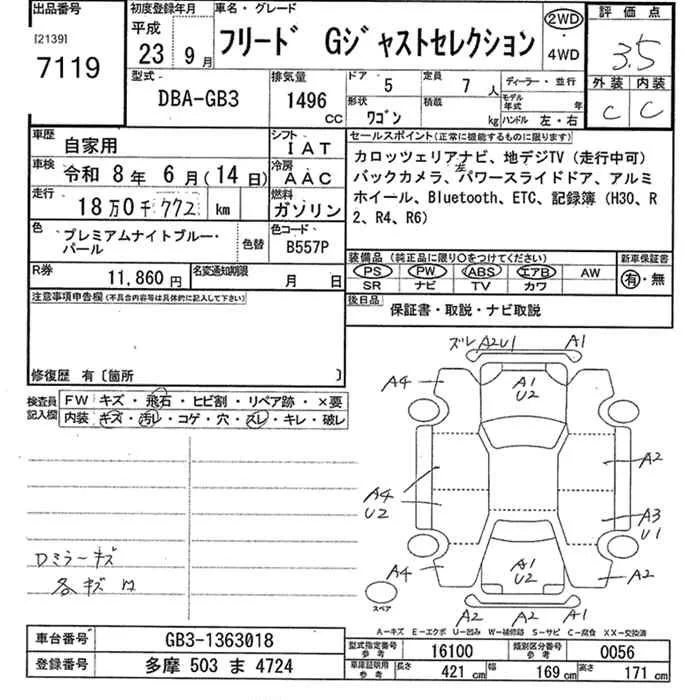 出品番号
[2139]
7119
初度登録年月
平成
23 9月
車名・グレード
フリード Gジャストセレクション
2WD
・
4WD
評価点
3.5
外装 内装
C C
型式
DBA-GB3
排気量
1496
cc
ドア 5
定員 7人
形状 ワゴン
積載 kg
ディーラー・並行
モデル年式 年
ハンドル 左・右
車歴 自家用
シフト IAT
車検 令和 8年 6月(14日)
冷房 AAC
走行 18万0千772 km
燃料 ガソリン
色 プレミアムナイトブルー・パール
色替
色コード B557P
R券 11,860円
名変通知期限 月 日
セールスポイント(正常に機能するものに限ります)
カロッツェリアナビ、地デジTV(走行中可)
バックカメラ、左パワースライドドア、アルミ
ホイール、Bluetooth、ETC、記録簿(H30、R
2、R4、R6)
装備品(純正品に限り○をつけてください)
PS PW ABS エアB AW
SR ナビ TV カワ
新車保証書
有・無
後日品 保証書・取説・ナビ取説
注意事項申告欄(不具合内容等は具体的に記入して下さい)
修復歴 有〔箇所 〕
検査員記入欄
FW キズ・飛石・ヒビ割・リペア跡・×要
内装 キズ・汚レ・コゲ・穴・スレ・キレ・破レ
Dミラーキズ
各キズ 凹
ズレ A2U1 A1
A4 A1 U2
A2
A4 U2
A3 U1
A4 A1 U2 A2
A2 A2 A2
スペア
A-キズ E-エクボ U-凹み W-補修跡 S-サビ C-腐食 XX-交換済
車台番号 GB3-1363018
登録番号 多摩 503 ま 4724
型式指定番号 参考 16100
類別区分番号 参考 0056
車庫証明用 参考
長さ 421 cm 幅 169 cm 高さ 171 cm